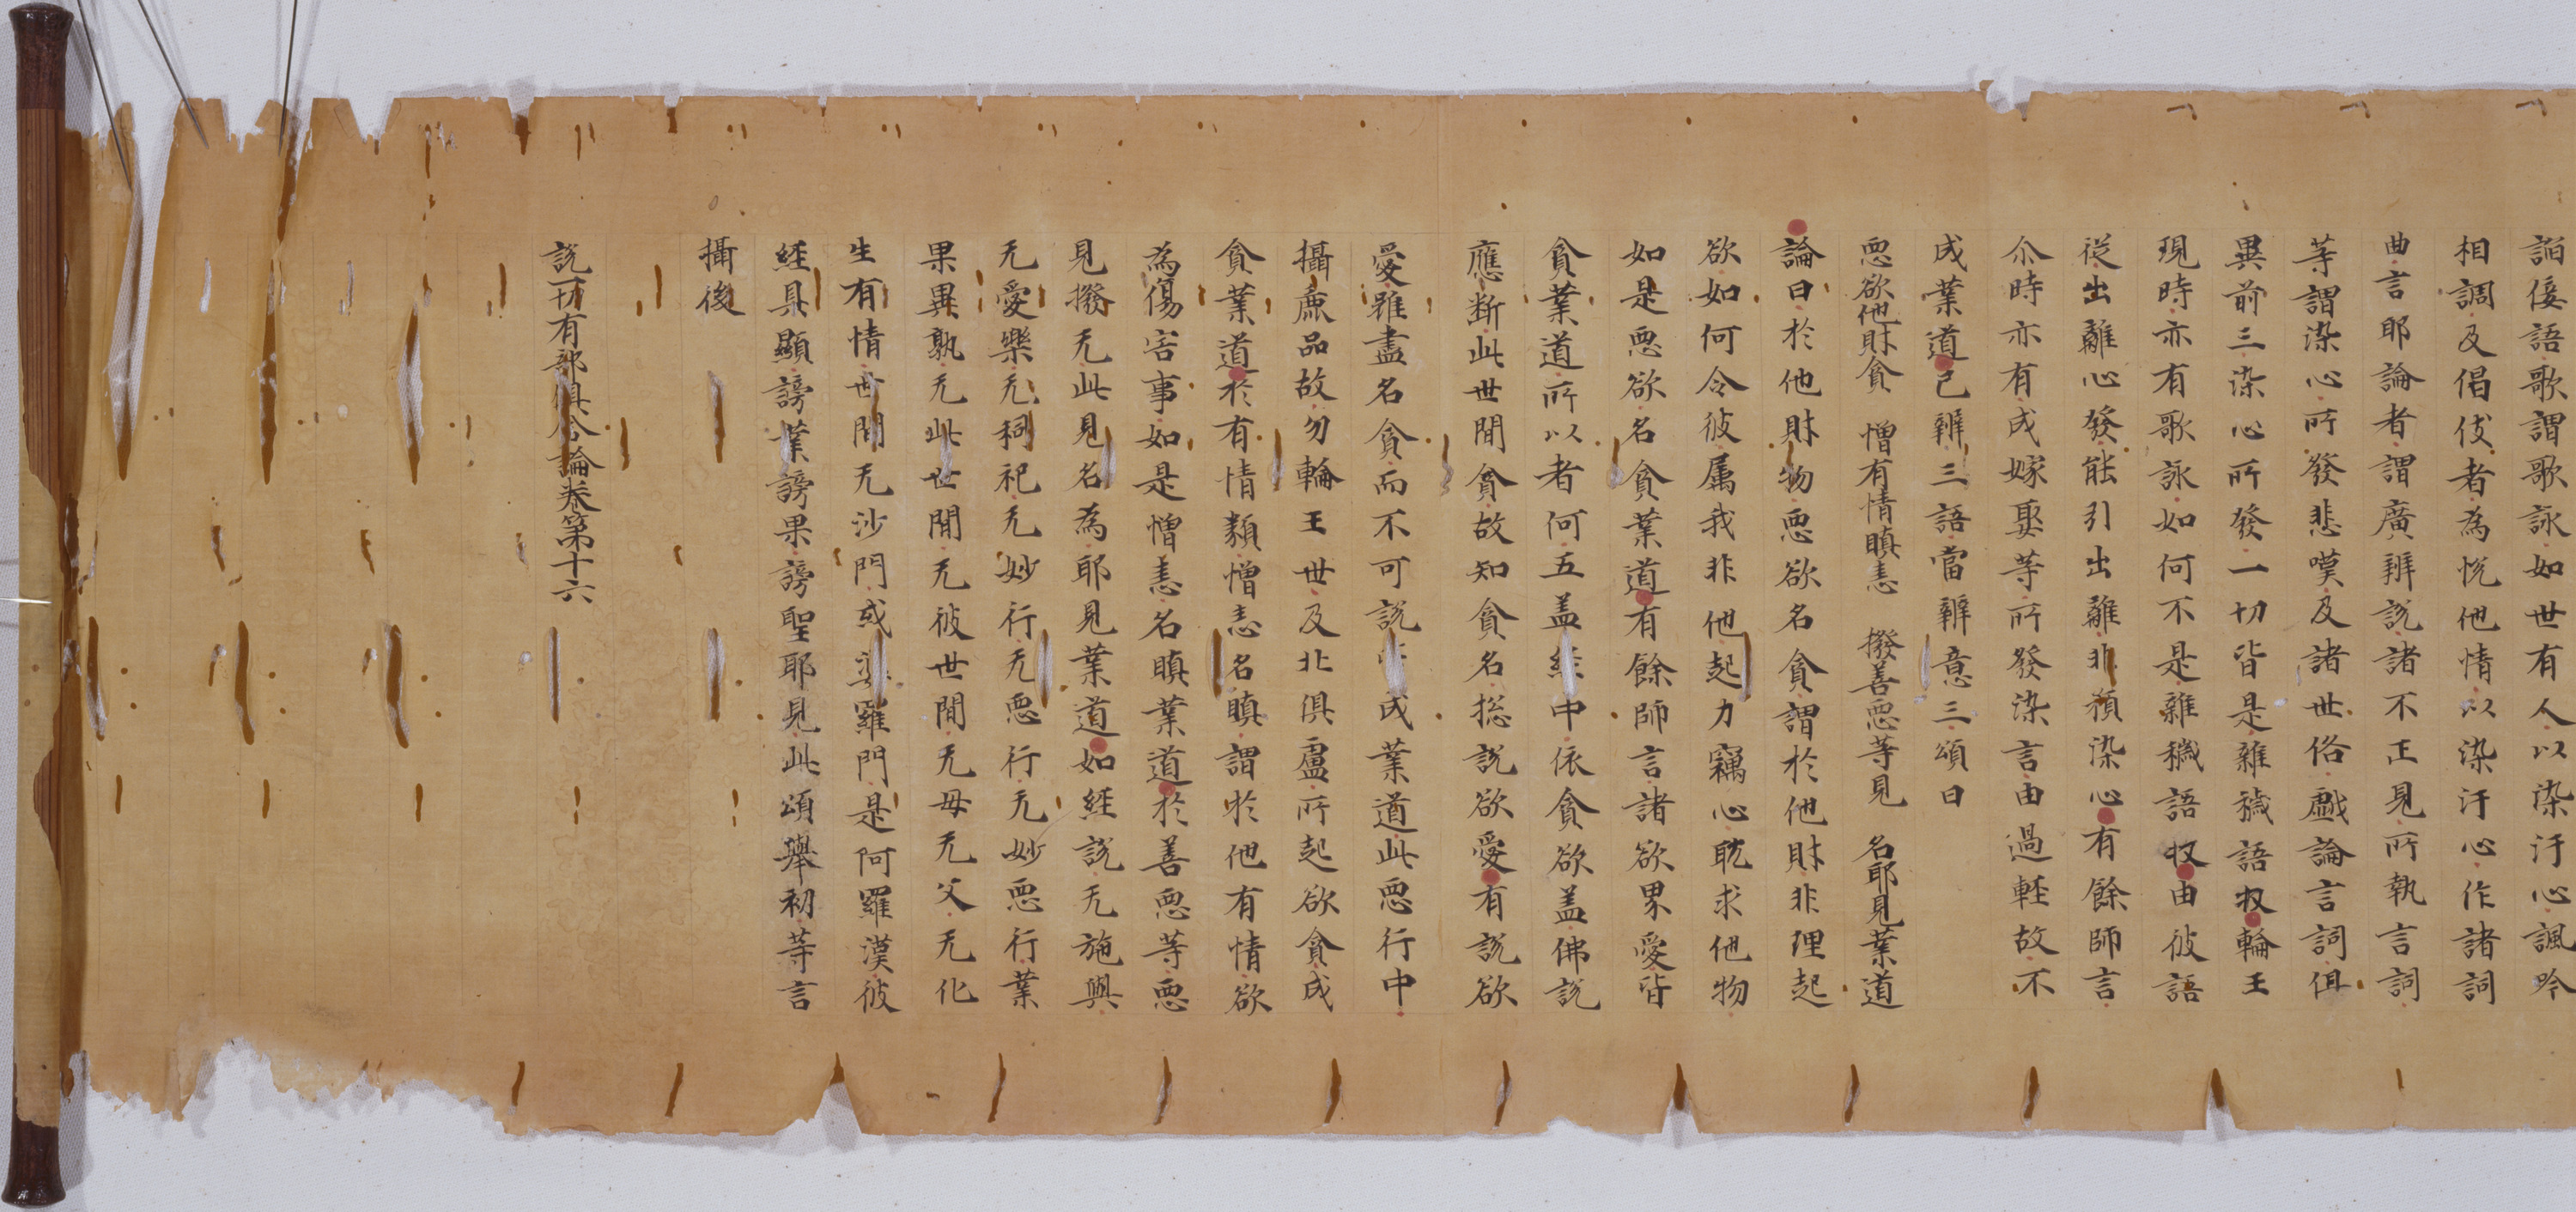 諂佞語歌謂歌詠如世有人以染汙心諷吟
相調及倡伎者為悅他情以染汙心作諸詞
曲言耶論者謂廣辯說諸不正見所執言詞
等謂染心所發悲嘆及諸世俗戲論言詞俱
異前三染心所發一切皆是雜穢語收輪王
現時亦有歌詠如何不是雜穢語收由彼語
從出離心發能引出離非預染心有餘師言
尒時亦有成嫁娶等所發染言由過輕故不
成業道已辯三語當辯意三頌曰
惡欲他財貪 憎有情瞋恚 撥善惡等見 名耶見業道
論曰於他財物惡欲名貪謂於他財非理起
欲如何令彼属我非他起力竊心耽求他物
如是惡欲名貪業道有餘師言諸欲界愛皆
貪業道所以者何五盖經中依貪欲盖佛說
應斷此世間貪故知貪名捴說欲愛有說欲
愛雖盡名貪而不可說皆成業道此惡行中
攝麁品故勿輪王世及北俱盧所起欲貪成
貪業道於有情類憎恚名瞋謂於他有情欲
為傷害事如是憎恚名瞋業道於善惡等惡
見撥无此見名為耶見業道如經說无施與
无愛樂无祠祀无妙行无惡行无妙惡行業
果異熟无此世間无彼世間无母无父无化
生有情世間无沙門或婆羅門是阿羅漢彼
經具顯謗業謗果謗聖耶見此頌舉初等言
攝後
說一切有部俱舍論卷第十六